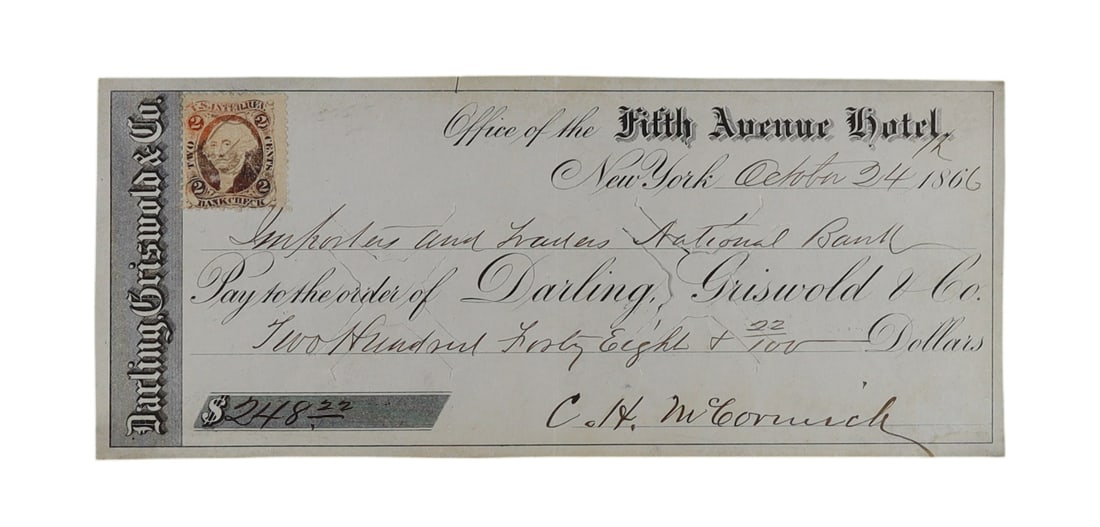 Darling, Griswold & Co.
U.S. INTER. REV.
2 2
TWO CENTS
2 2
BANK CHECK
Office of the Fifth Avenue Hotel,
New York October 24 1866
Importers and Traders National Bank
Pay to the order of Darling, Griswold & Co.
Two Hundred Forty Eight & 22/100 Dollars
$248.22
C. H. McCormick